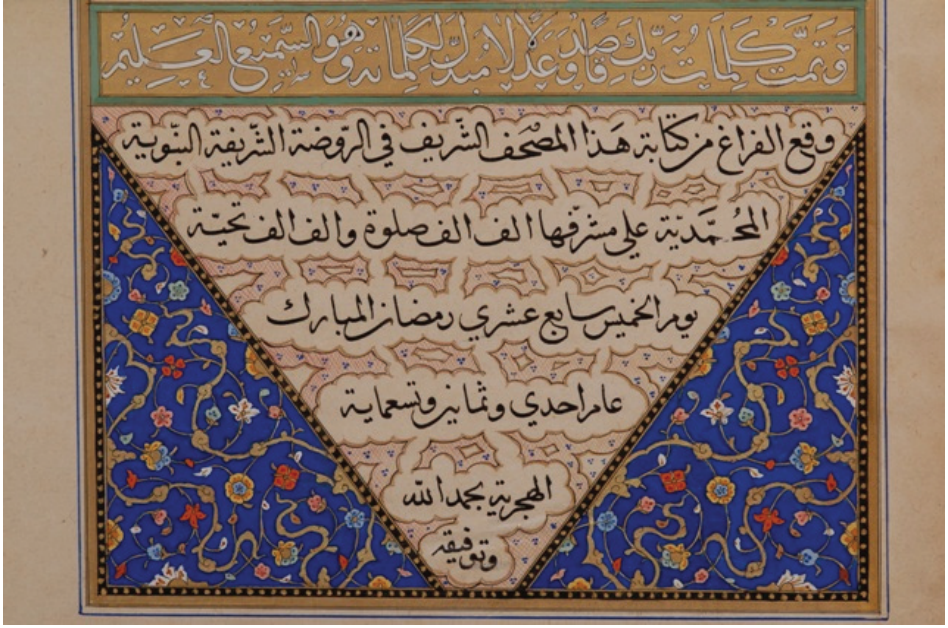 وَتَمَّتْ كَلِمَاتُ رَبِّكَ صِدْقًا وَعَدْلًا لَا مُبَدِّلَ لِكَلِمَاتِهِ وَهُوَ السَّمِيعُ الْعَلِيمُ
وقع الفراغ من كتابة هذا المصحف الشّريف في الرّوضة الشّريفة النّبوية
المُحمَّديّة علي مشرّفها الف الف صلوة والف الف تحيّة
يوم الخميس سابع عشري رمضان المبارك
عام احدي وثمانين وتسعماية
الهجرية بحمد الله
وتوفيقه